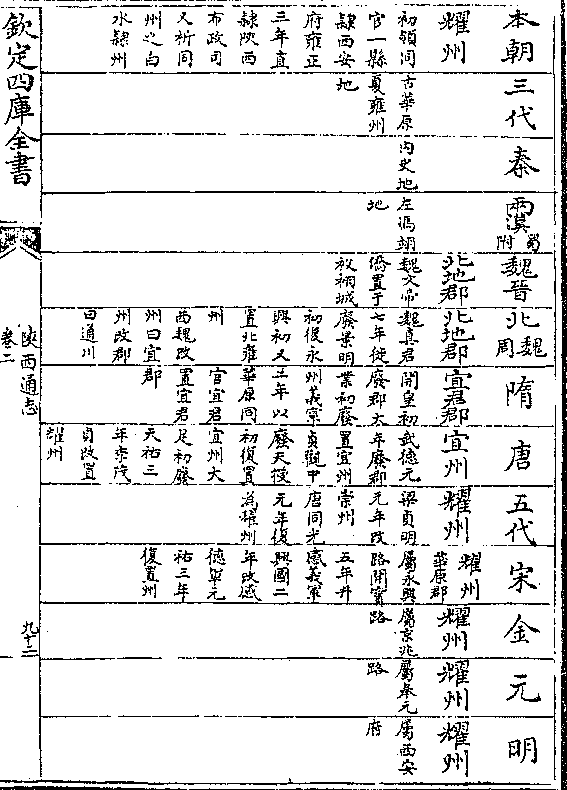 本朝
耀州
初領同
官一縣
隸西安
府雍正
三年直
隸陝西
布政司
又析同
州之白
水隸州
三代
古華原
夏雍州
地
秦
内史地
兩漢蜀附
左馮翊
地
魏晉
北地郡
魏文帝
僑置于
祋祤城
北魏周
北地郡
魏真君
七年徙
廢景明
初復永
興初又
置北雍
州
西魏改
州曰宜
州改郡
曰通川
隋
宜君郡
開皇初
廢郡大
業初廢
州義寧
二年以
華原同
官宜君
置宜君
郡
唐
宜州
武德元
年廢郡
置宜州
貞觀中
廢天授
初復置
宜州大
足初廢
天祐三
年李茂
貞改置
耀州
五代
耀州
梁貞明
元年改
崇州
唐同光
元年復
為耀州
宋
耀州
華原郡
屬永興
路開寳
五年升
感義軍
興國二
年改感
德軍元
祐三年
復置州
金
耀州
屬京兆
路
元
耀州
屬奉元
路
明
耀州
屬西安
府
欽定四庫全書
陝西通志
卷二
九十二